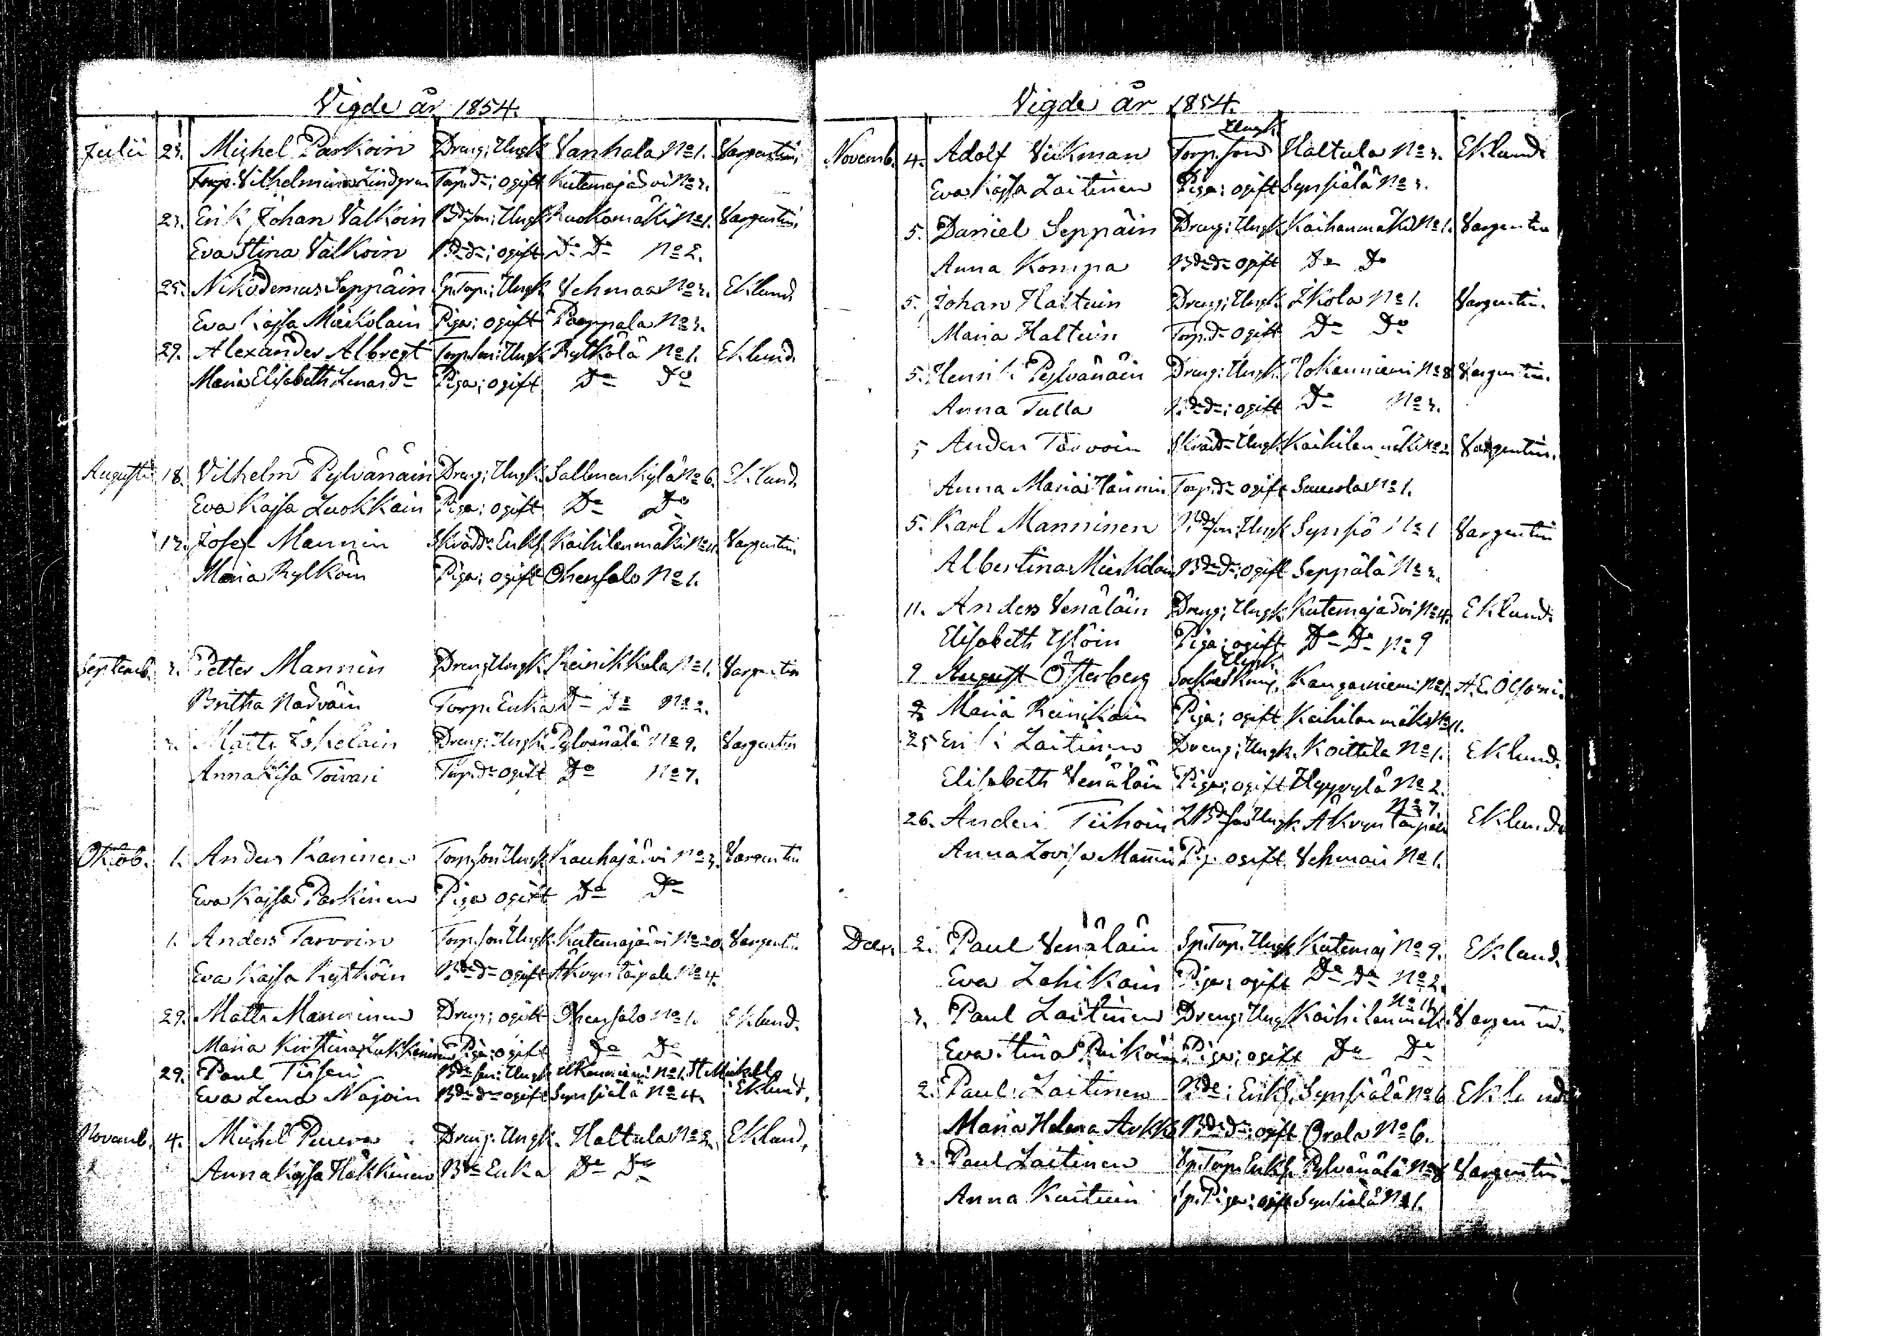 Vigde år 1854.
Julii 23. Michel Parkoin Dreng; Ungk. Vanhala No 1. Vargentin;
Vilhelmina Lindgren Torp. dr; ogift Kutemajärvi No 3.
23. Erik Johan Valkoin Bd. son; Ungk Ruokomäki No 1. Vargentin
Eva Stina Valkoin Bde dr; ogift Do Do No 2.
25. Nikodemus Seppäin Sp. Torp.; Ungk Vehmaa No 3. Eklund.
Eva Kajsa Mieskolain Piga; ogift No 3.
29. Alexander Albregt Torp. son; Ungk Rytkölä No 1. Eklund.
Maria Elisabeth Lenardr Piga; ogift Do Do
Augusti 18. Vilhelm Pylvänäin Dreng; Ungk. Salmenkylä No 6. Eklund.
Eva Kajsa Luokkain Piga; ogift Do Do
13. Josef Mannin Skrädd. Enkl. Kaihilanmäki No 11. Vargentin
Maria Rytköin Piga; ogift Ohensalo No 1.
Septemb. 3. Petter Mannin Dreng; Ungk. Reinikkala No 1. Vargentin
Britha Närväin Torp. Enka Do Do No 2.
3. Matts Iskelain Dreng; Ungk Pylvänälä No 9. Vargentin
Anna Lisa Toivari Torp. dr ogift Do No 7.
Oktob. 1. Anders Kaninen Torp. son Ungk. Kauhajärvi No 3. Vargentin
Eva Kajsa Parkinen Piga ogift Do Do
1. Anders Tarvoin Torp. son Ungk. Kutemajärvi No 20. Vargentin
Eva Kajsa Rytköin Bde dr ogift Akvyntaipale No 4.
29. Matts Manninen Dreng; ogift Ohensalo No 1. Eklund.
Maria Kristina Lukkainen Piga; ogift Do Do
29. Paul Tissari Bde son; Ungk No 1. St Mickels
Eva Lena Najoin Bde dr ogift Synsiälä No 4. Eklund.
Novemb. 4. Michel Dreng; Ungk. Haltula No 2. Eklund.
Anna Kajsa Häkkinen Bde Enka Do Do
Vigde år 1854.
Ungk.
Novemb. 4. Adolf Vickman Torp. son Haltula No 3. Eklund.
Eva Kajsa Laitinen Piga; ogift Synsiälä No 3.
5. Daniel Seppäin Dreng; Ungk Kaihanmäki No 1. Vargentin
Anna Kompa Bde dr ogift Do Do
5. Johan Haltuin Dreng; Ungk. Ikola No 1. Vargentin.
Maria Haltuin Torp. dr ogift Do Do
5. Henrik Pylvänäin Dreng; Ungk. Hokanniemi No 8 Vargentin.
Anna Tulla Bde dr; ogift Do No 3.
5 Anders Tarvoin Skrädd. Ungk Kaihilanmäki No 2 Vargentin.
Anna Maria Hännin Torp. dr ogift No 1.
5. Karl Manninen Bd. son; Ungk Synsiö No 1 Vargentin
Albertina Mieskolain Bde dr; ogift Seppälä No 3.
11. Anders Venäläin Dreng; Ungk Kutemajärvi No 4. Eklund.
Elisabeth Ylöin Piga; ogift Do Do No 9
Ungk.
9 August Österberg Kangasniemi No 1. A. E. Olsoni.
Maria Reinikain Piga; ogift Kaihilanmäki No 11.
25 Erik Laitinen Dreng; Ungk. Koittila No 1. Eklund.
Elisabeth Venäläin Piga; ogift Hyyrylä No 2.
No 7.
26. Anders Tiihoin Bd. son Ungk Akvyntaipale Eklund.
Anna Lovisa Mannin Pig. ogift Vehmais No 1.
Decr. 2. Paul Venäläin Sp. Torp. Ungk. Kutemaj No 9. Eklund.
Eva Lahikain Piga; ogift Do Do No 2.
No 11
3. Paul Laitinen Dreng; Ungk Kaihilanmäki. Vargentin.
Eva Stina Parkoin Piga; ogift Do Do
2. Paul Laitinen Bde; Enkl. Synsiälä No 6 Eklund
Maria Helena Aukk Bde dr; ogift Orala No 6.
3. Paul Laitinen Sp. Torp. Enkl. Pylvänälä No 8 Vargentin.
Anna Kaituin Sp. Piga; ogift Synsiälä No 1.